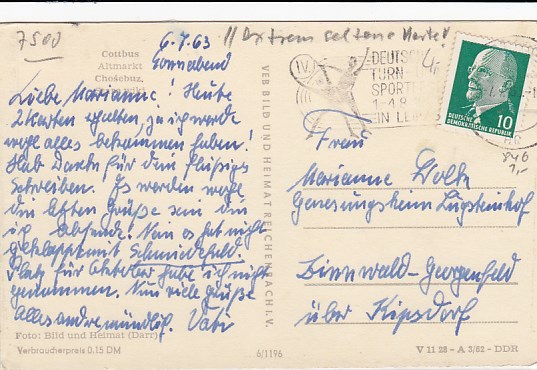 7500
6.7.63
Sonnabend
// Extrem seltene Karte!
Cottbus
Altmarkt
Chośebuz,
Liebe Marianne! Heute
2 Karten erhalten, ja ich werde
wohl alles bekommen haben!
Hab Dank für dein fleißiges
Schreiben. Es werden wohl
die letzten Grüße sein die
ich absende. Nun es hat nicht
geklappt mit Schmiedefeld.
Platz für Oktober habe ich nicht
genommen. Nun viele Grüße
Alles andere mündlich. Vati
Foto: Bild und Heimat (Darr)
Verbraucherpreis 0,15 DM
VEB BILD UND HEIMAT REICHENBACH I. V.
6/1196
IV.
DEUTSCH
TURN-
SPORT
1-4.8
IN LEI
10
DEUTSCHE
DEMOKRATISCHE REPUBLIK
Frau
Marianne
Genesungsheim Lugsteinhof
Zinnwald-Georgenfeld
über Kipsdorf
V 11 28 - A 3/62 - DDR